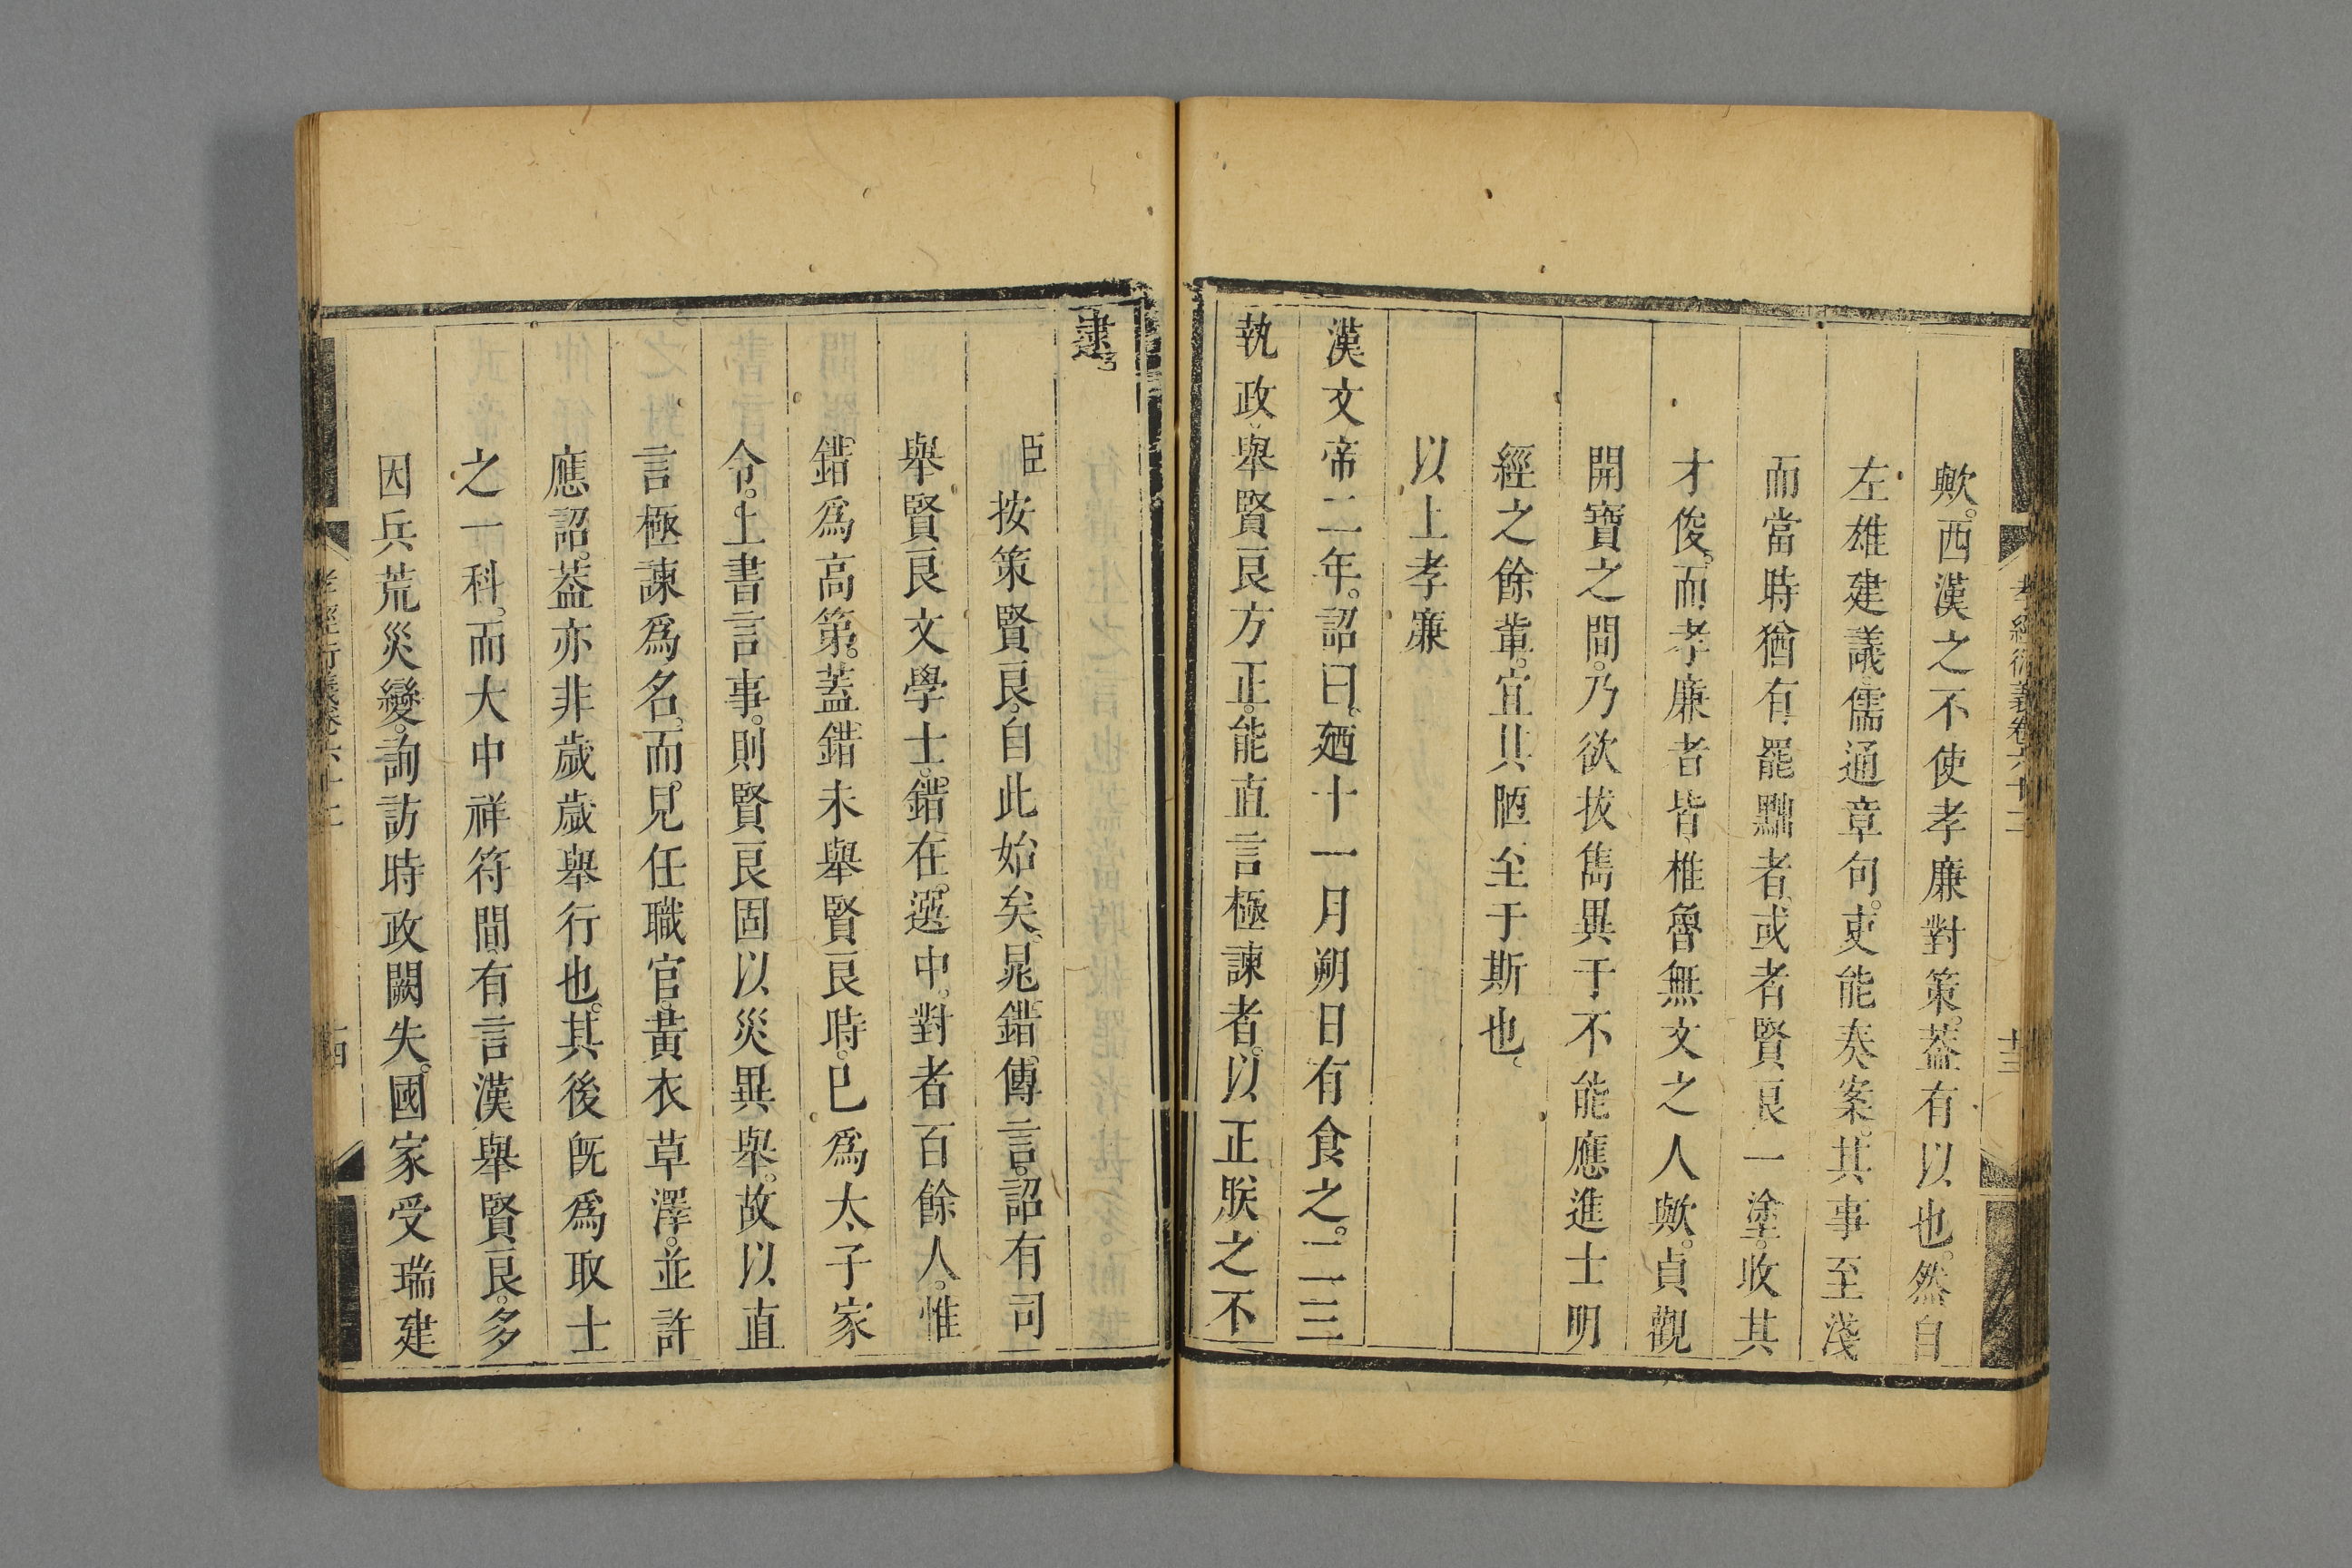 孝經衍義卷六十二
十三
歟。西漢之不使孝廉對策。葢有以也。然自
左雄建議儒通章句。吏能奏案。其事至淺
而當時猶有罷黜者、或者賢良一塗。收其
才俊。而孝廉者皆椎魯無文之人歟。貞觀
開寶之間。乃欲拔雋異于不能應進士明
經之餘軰。宜其陋至于斯也、
以上孝廉
漢文帝二年。詔曰、廼十一月朔日有食之。二三
執政、舉賢良方正。能直言極諫者。以正朕之不
逮。
臣按策賢良。自此始矣、晁錯傳言。詔有司
舉賢良文學士。錯在選中。對者百餘人。惟
錯爲高第。蓋錯未舉賢良時。已爲太子家
令。上書言事。則賢良固以災異舉。故以直
言極諫爲名。而見任職官。黃衣草澤。並許
應詔。葢亦非歲歲舉行也。其後旣爲取士
之一科。而大中祥符間有言漢舉賢良。多
因兵荒災變。詢訪時政闕失。國家受瑞建
孝經衍義卷六十二
十四